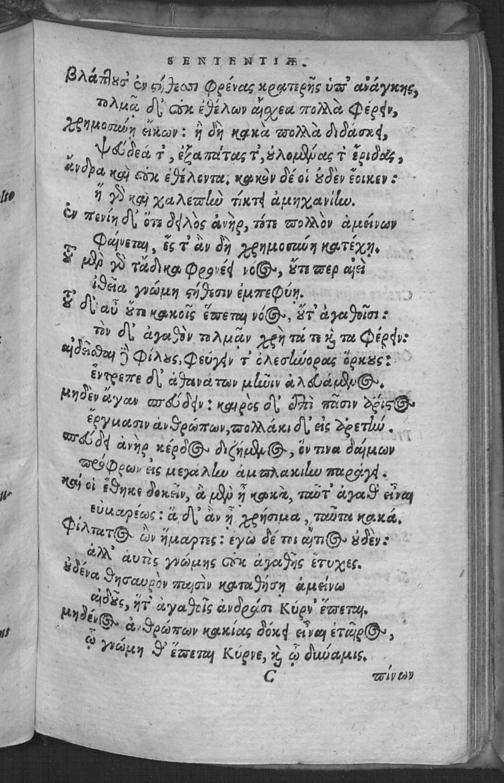 SENTENTIÆ.
βλάπτους᾽ ἐν στήθεσσι φρένας κρατερῆς ὑπ᾽ ἀνάγκης,
τολμᾷ δ᾽ οὐκ ἐθέλων αἴσχεα πολλὰ φέρειν,
χρημοσύνῃ εἴκων: ἣ δὴ κακὰ πολλὰ διδάσκει,
ψεύδεά τ᾽, ἐξαπάτας τ᾽, οὐλομένας τ᾽ ἔριδας,
ἄνδρα καὶ οὐκ ἐθέλοντα, κακὸν δέ οἱ οὐδὲν ἔοικεν:
ἡ γὰρ καὶ χαλεπὴν τίκτει ἀμηχανίην.
ἐν πενίῃ δ᾽ ὅτε δειλὸς ἀνὴρ, τότε πολλὸν ἀμείνων
φαίνεται, ἔς τ᾽ ἂν δὴ χρημοσύνη κατέχῃ.
τοῦ μὲν γὰρ τἄδικα φρονέει νόος, οὔτε περ αἰεὶ
ἰθεῖα γνώμη στήθεσιν ἐμπεφύῃ.
τοῦ δ᾽ αὖ οὔτε κακοῖς ἕπεται νόος, οὔτ᾽ ἀγαθοῖσι:
τὸν δ᾽ ἀγαθὸν τολμᾶν χρὴ τά τε καὶ τὰ φέρειν:
αἰδεῖσθαι δὲ φίλους, φεύγειν τ᾽ ὀλεσήνορας ὅρκους:
ἔντρεπε δ᾽ ἀθανάτων μῆνιν ἀλευάμενος.
μηδὲν ἄγαν σπεύδειν: καιρὸς δ᾽ ἐπὶ πᾶσιν ἄριστος
ἔργμασιν ἀνθρώπων, πολλάκι δ᾽ εἰς ἀρετὴν.
σπεύδει ἀνὴρ κέρδος διζήμενος, ὅντινα δαίμων
πρόφρων εἰς μεγάλην ἀμπλακίην παράγει.
καί οἱ ἔθηκε δοκεῖν, ἃ μὲν ᾖ κακὰ, ταῦτ᾽ ἀγάθ᾽ εἶναι
εὐμαρέως: ἃ δ᾽ ἂν ᾖ χρήσιμα, ταῦτα κακά.
φίλτατος ὢν ἥμαρτες: ἐγὼ δέ τοι αἴτιος οὐδέν:
ἀλλ᾽ αὐτὶς γνώμης οὐκ ἀγαθῆς ἔτυχες.
οὐδένα θησαυρὸν παισὶν καταθήσῃ ἀμείνω
αἰδοῦς, ἥτ᾽ ἀγαθοῖς ἀνδράσι Κύρν᾽ ἕπεται.
μηδένος ἀνθρώπων κακίας δόκει εἶναι ἑταῖρος,
ᾧ γνώμη θ᾽ ἕπεται Κύρνε, καὶ ᾧ δύναμις.
C πίνων